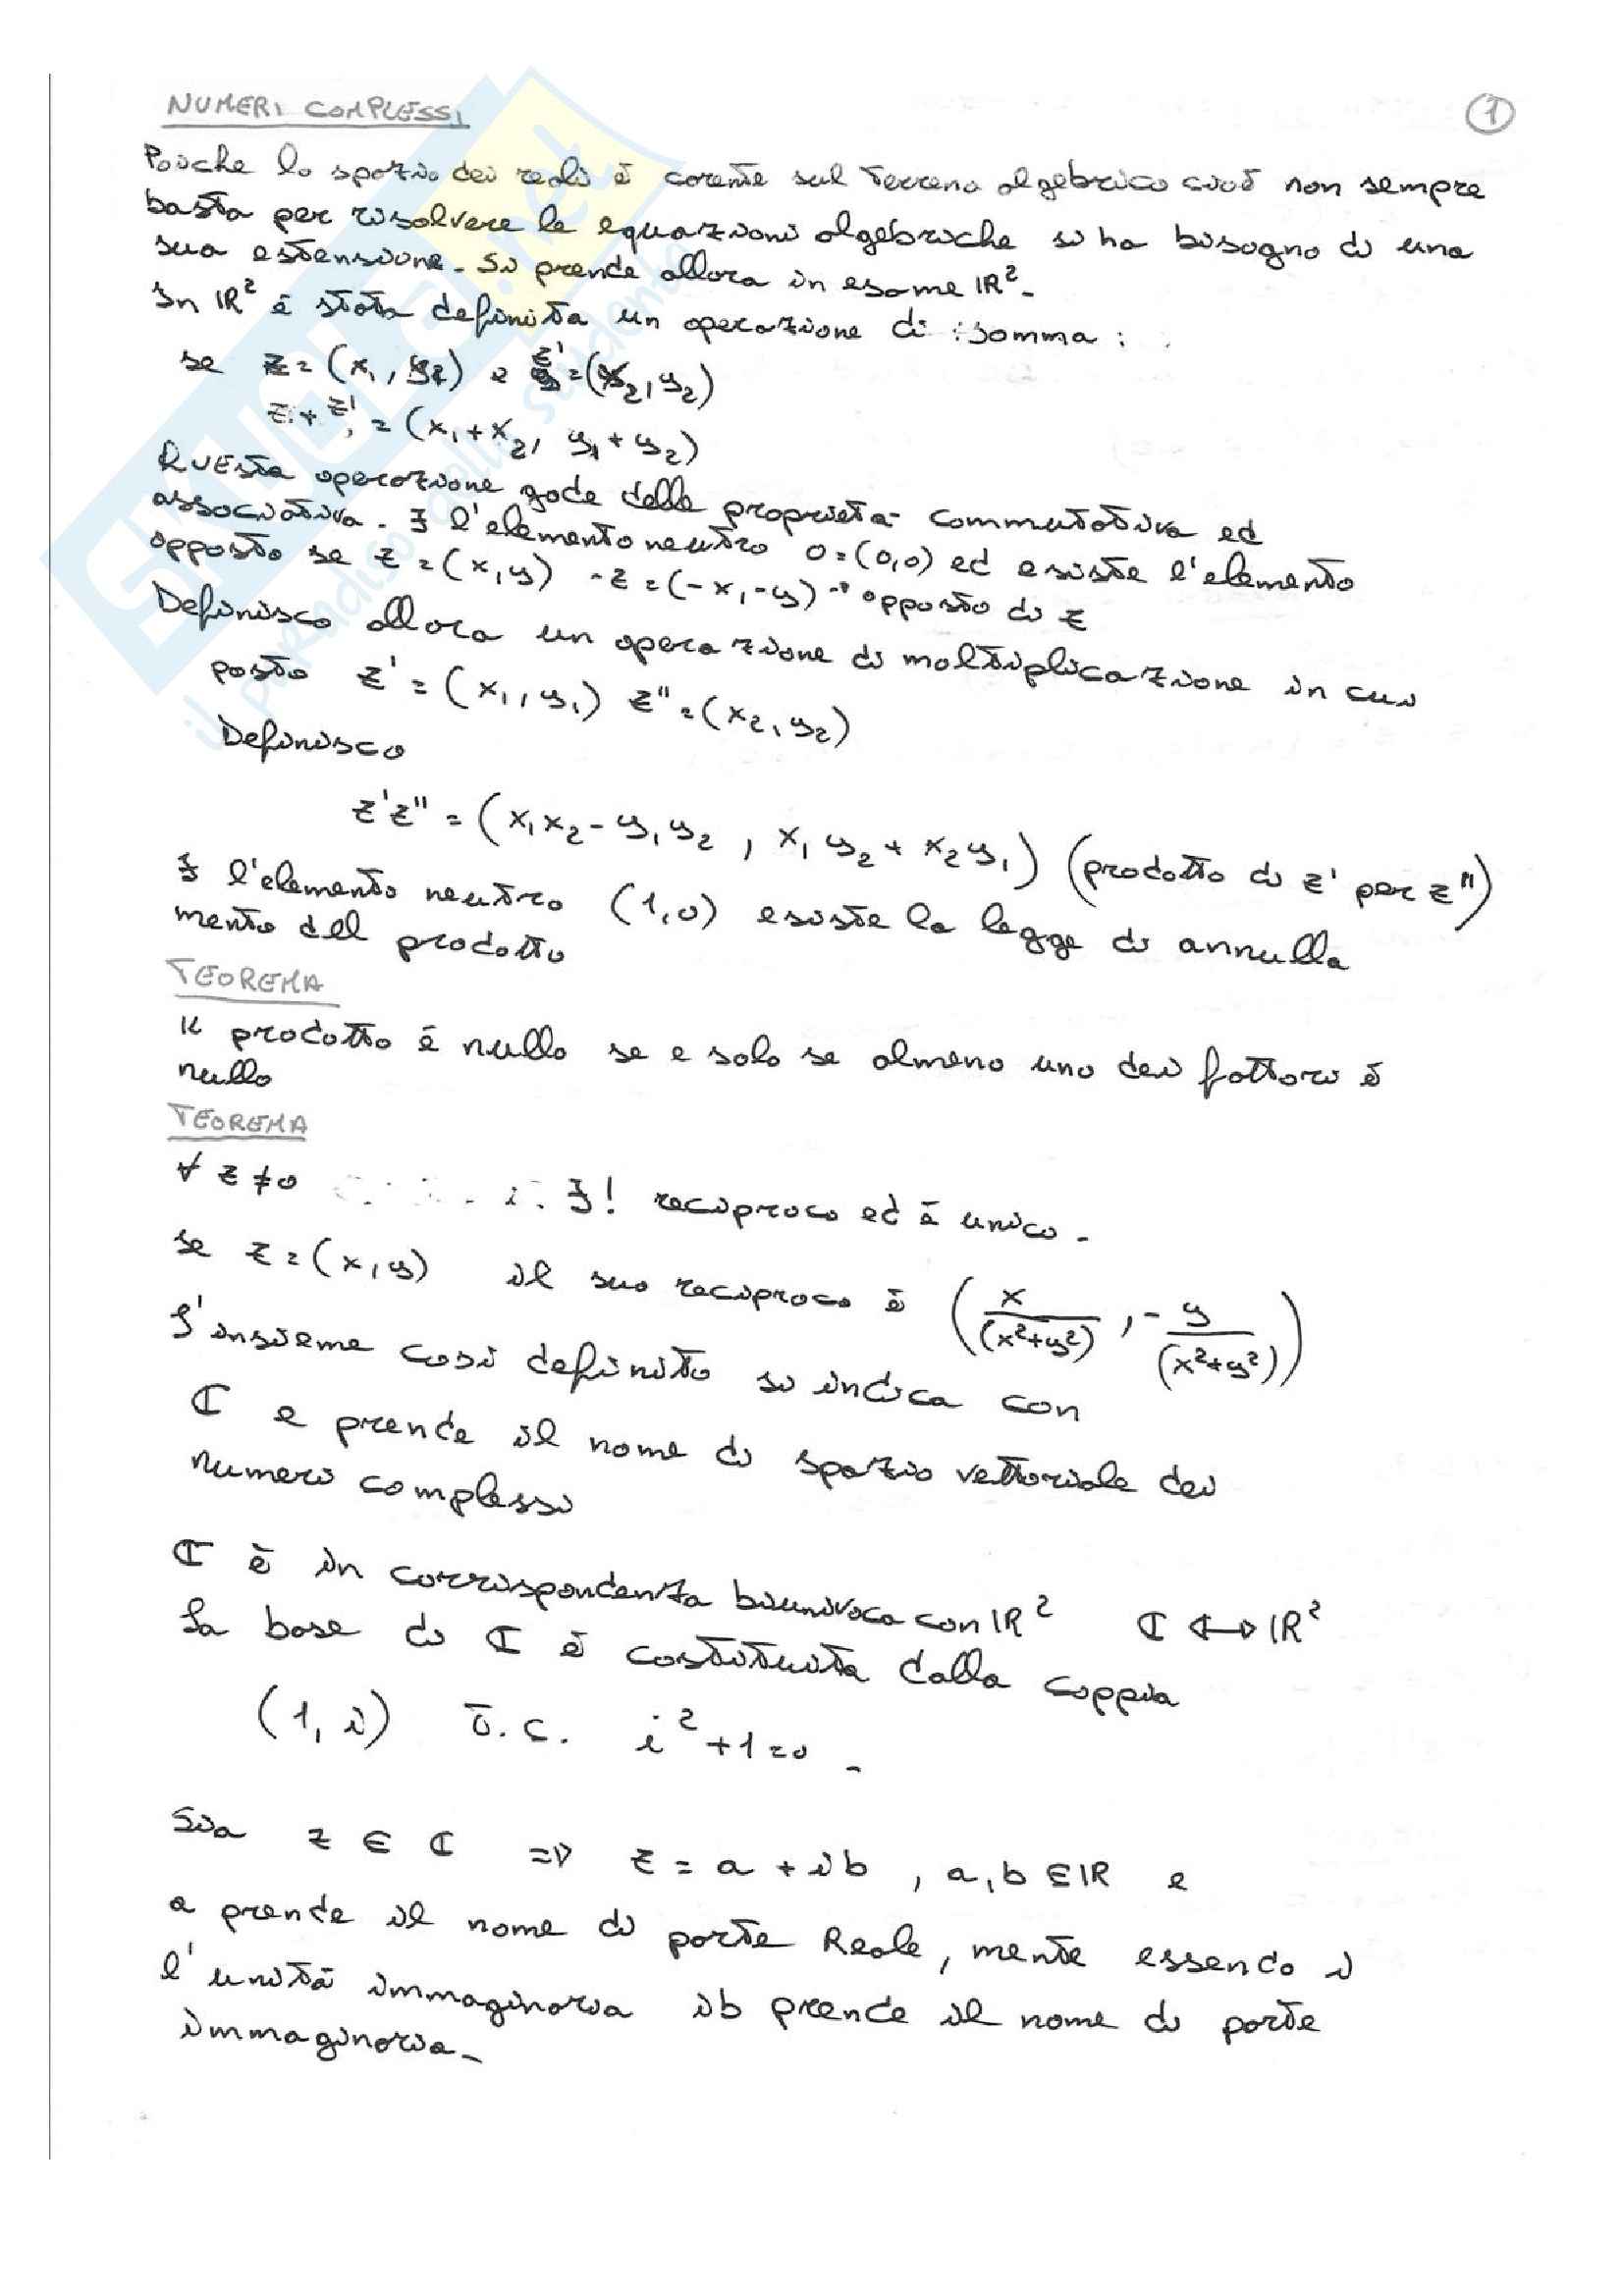 NUMERI COMPLESSI
1
Poiche lo spazio dei reali è carente sul terreno algebrico cioè non sempre
basta per risolvere le equazioni algebriche si ha bisogno di una
sua estensione. Si prende allora in esame ℝ².
In ℝ² è stata definita un operazione di somma:
se z=(x₁,y₁) e z'=(x₂,y₂)
z+z' = (x₁+x₂, y₁+y₂)
Questa operazione gode della proprietà commutativa ed
associativa. ∃ l'elemento neutro 0=(0,0) ed esiste l'elemento
opposto se z=(x,y) -z=(-x,-y) → opposto di z
Definisco allora un operazione di moltiplicazione in cui
posto z'=(x₁,y₁) z''=(x₂,y₂)
Definisco
z'z'' = (x₁x₂-y₁y₂, x₁y₂+x₂y₁) (prodotto di z' per z'')
∃ l'elemento neutro (1,0) esiste la legge di annulla
mento del prodotto
TEOREMA
Il prodotto è nullo se e solo se almeno uno dei fattori è
nullo
TEOREMA
∀ z≠0 ∃! reciproco ed è unico.
se z=(x,y) il suo reciproco è (x/(x²+y²), -y/(x²+y²))
L'insieme così definito si indica con
ℂ e prende il nome di spazio vettoriale dei
numeri complessi
ℂ è in corrispondenza biunivoca con ℝ² ℂ ↔ ℝ²
La base di ℂ è costituita dalla coppia
(1, i) t.c. i²+1=0.
Sia z ∈ ℂ ⇒ z = a + ib, a,b ∈ ℝ e
a prende il nome di parte Reale, mente essendo i
l'unità immaginaria ib prende il nome di parte
immaginaria.
SKUOLA.net
il paradiso degli studenti